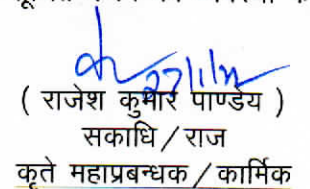 27/1/22
( राजेश कुमार पाण्डेय )
सकाधि / राज
कृते महाप्रबन्धक / कार्मिक